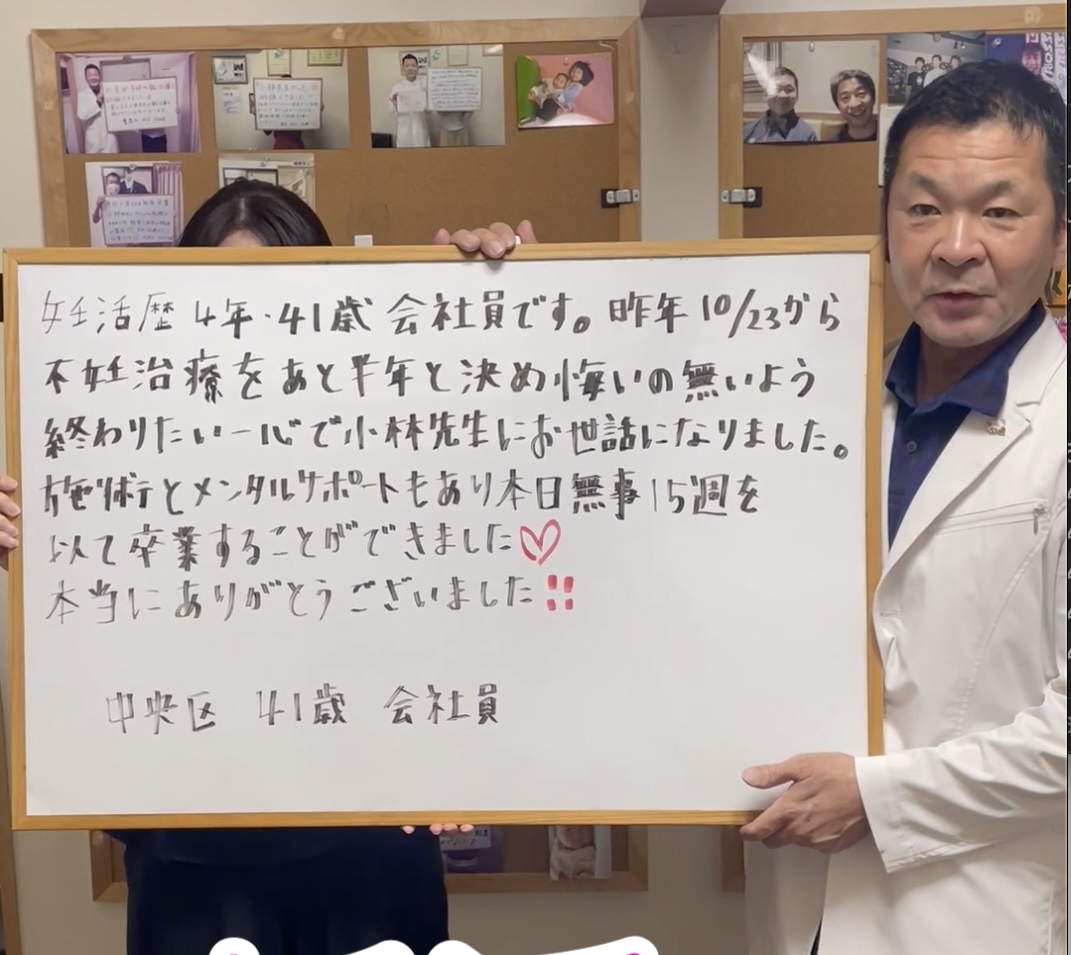 妊活歴4年・41歳 会社員です。昨年10/23から
不妊治療をあと半年と決め悔いの無いよう
終わりたい一心で小林先生にお世話になりました。
施術とメンタルサポートもあり本日無事15週を
以て卒業することができました♡
本当にありがとうございました!!
中央区 41歳 会社員